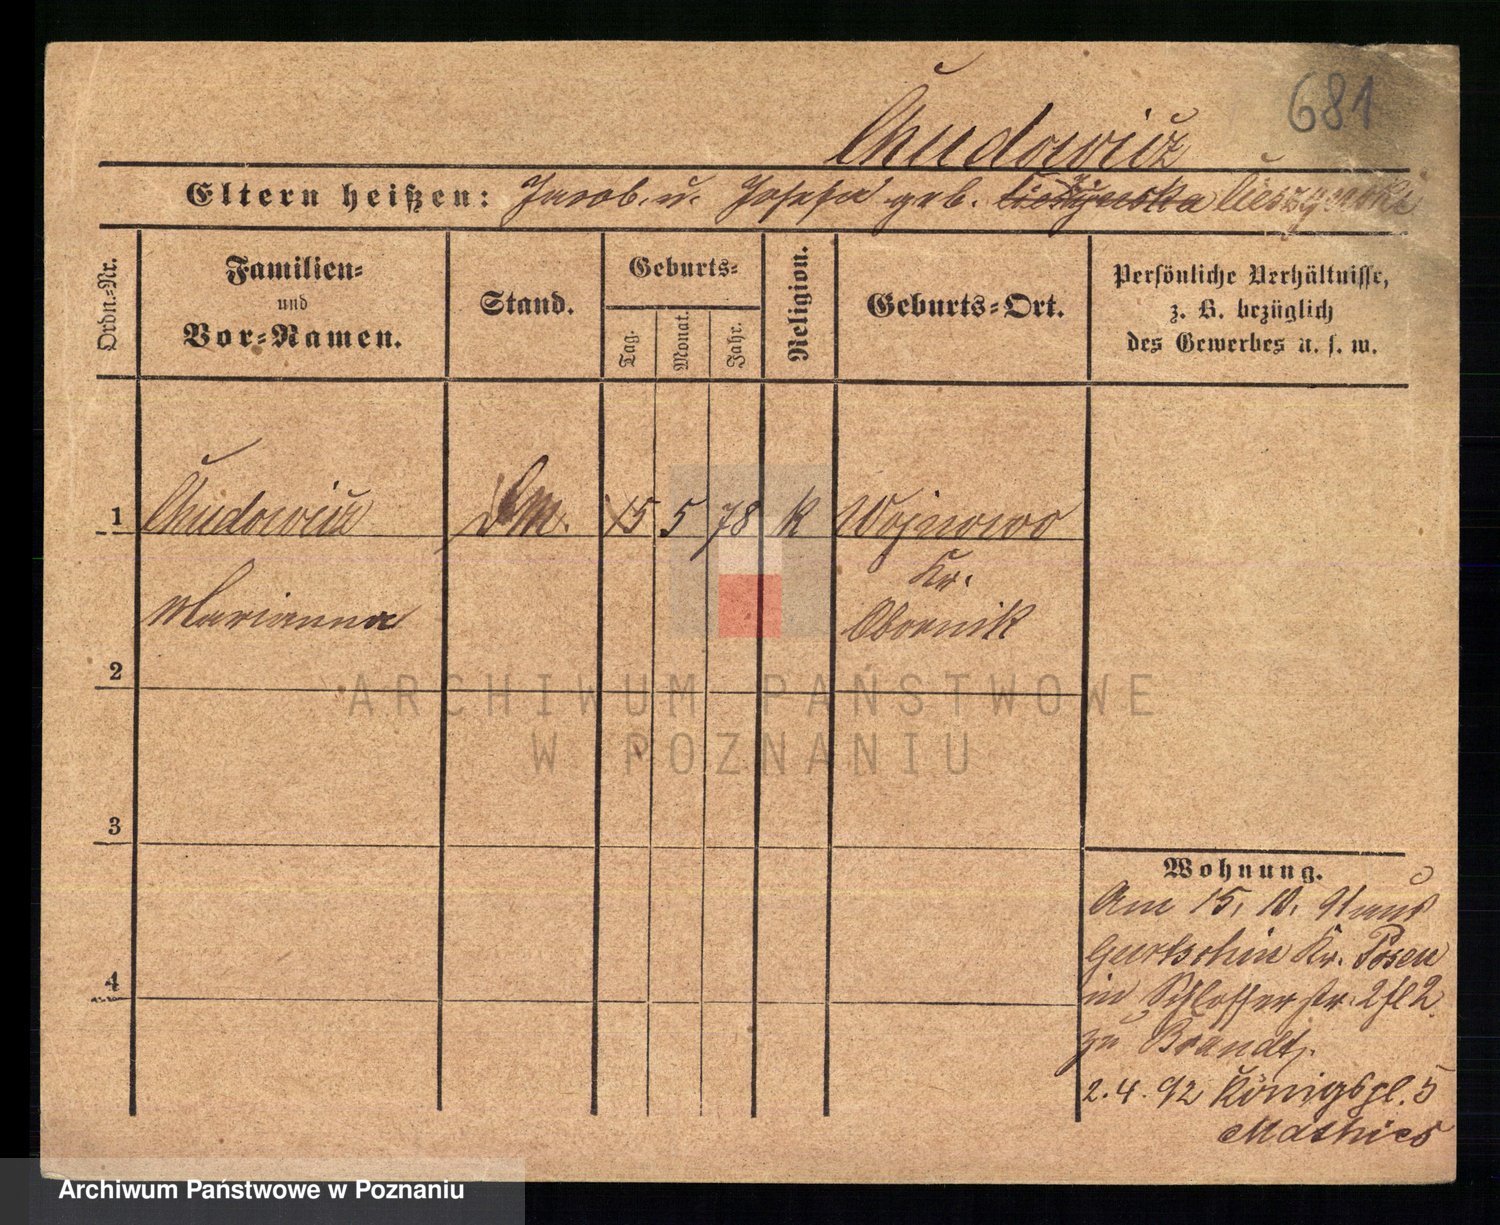 681
Chudowicz
Eltern heißen: Jacob u. Josefa geb. Cieszynska Cieszynski
Ordn.-Nr.
Familien-
und
Vor-Namen.
Stand.
Geburts-
Tag.
Monat.
Jahr.
Religion.
Geburts-Ort.
Persönliche Verhältnisse,
z. B. bezüglich
des Gewerbes u. s. w.
1 Chudowicz Dm. 15 5 78 K Wojnowo
Kr.
Marianna Obornik
2
ARCHIWUM PAŃSTWOWE
W POZNANIU
3
Wohnung.
Am 15. 10. 91 aus
Gurtschin Kr. Posen
in Schlosserstr. 2
4
zu Brandt.
2.4.92 Königspl. 5
Mathies
Archiwum Państwowe w Poznaniu